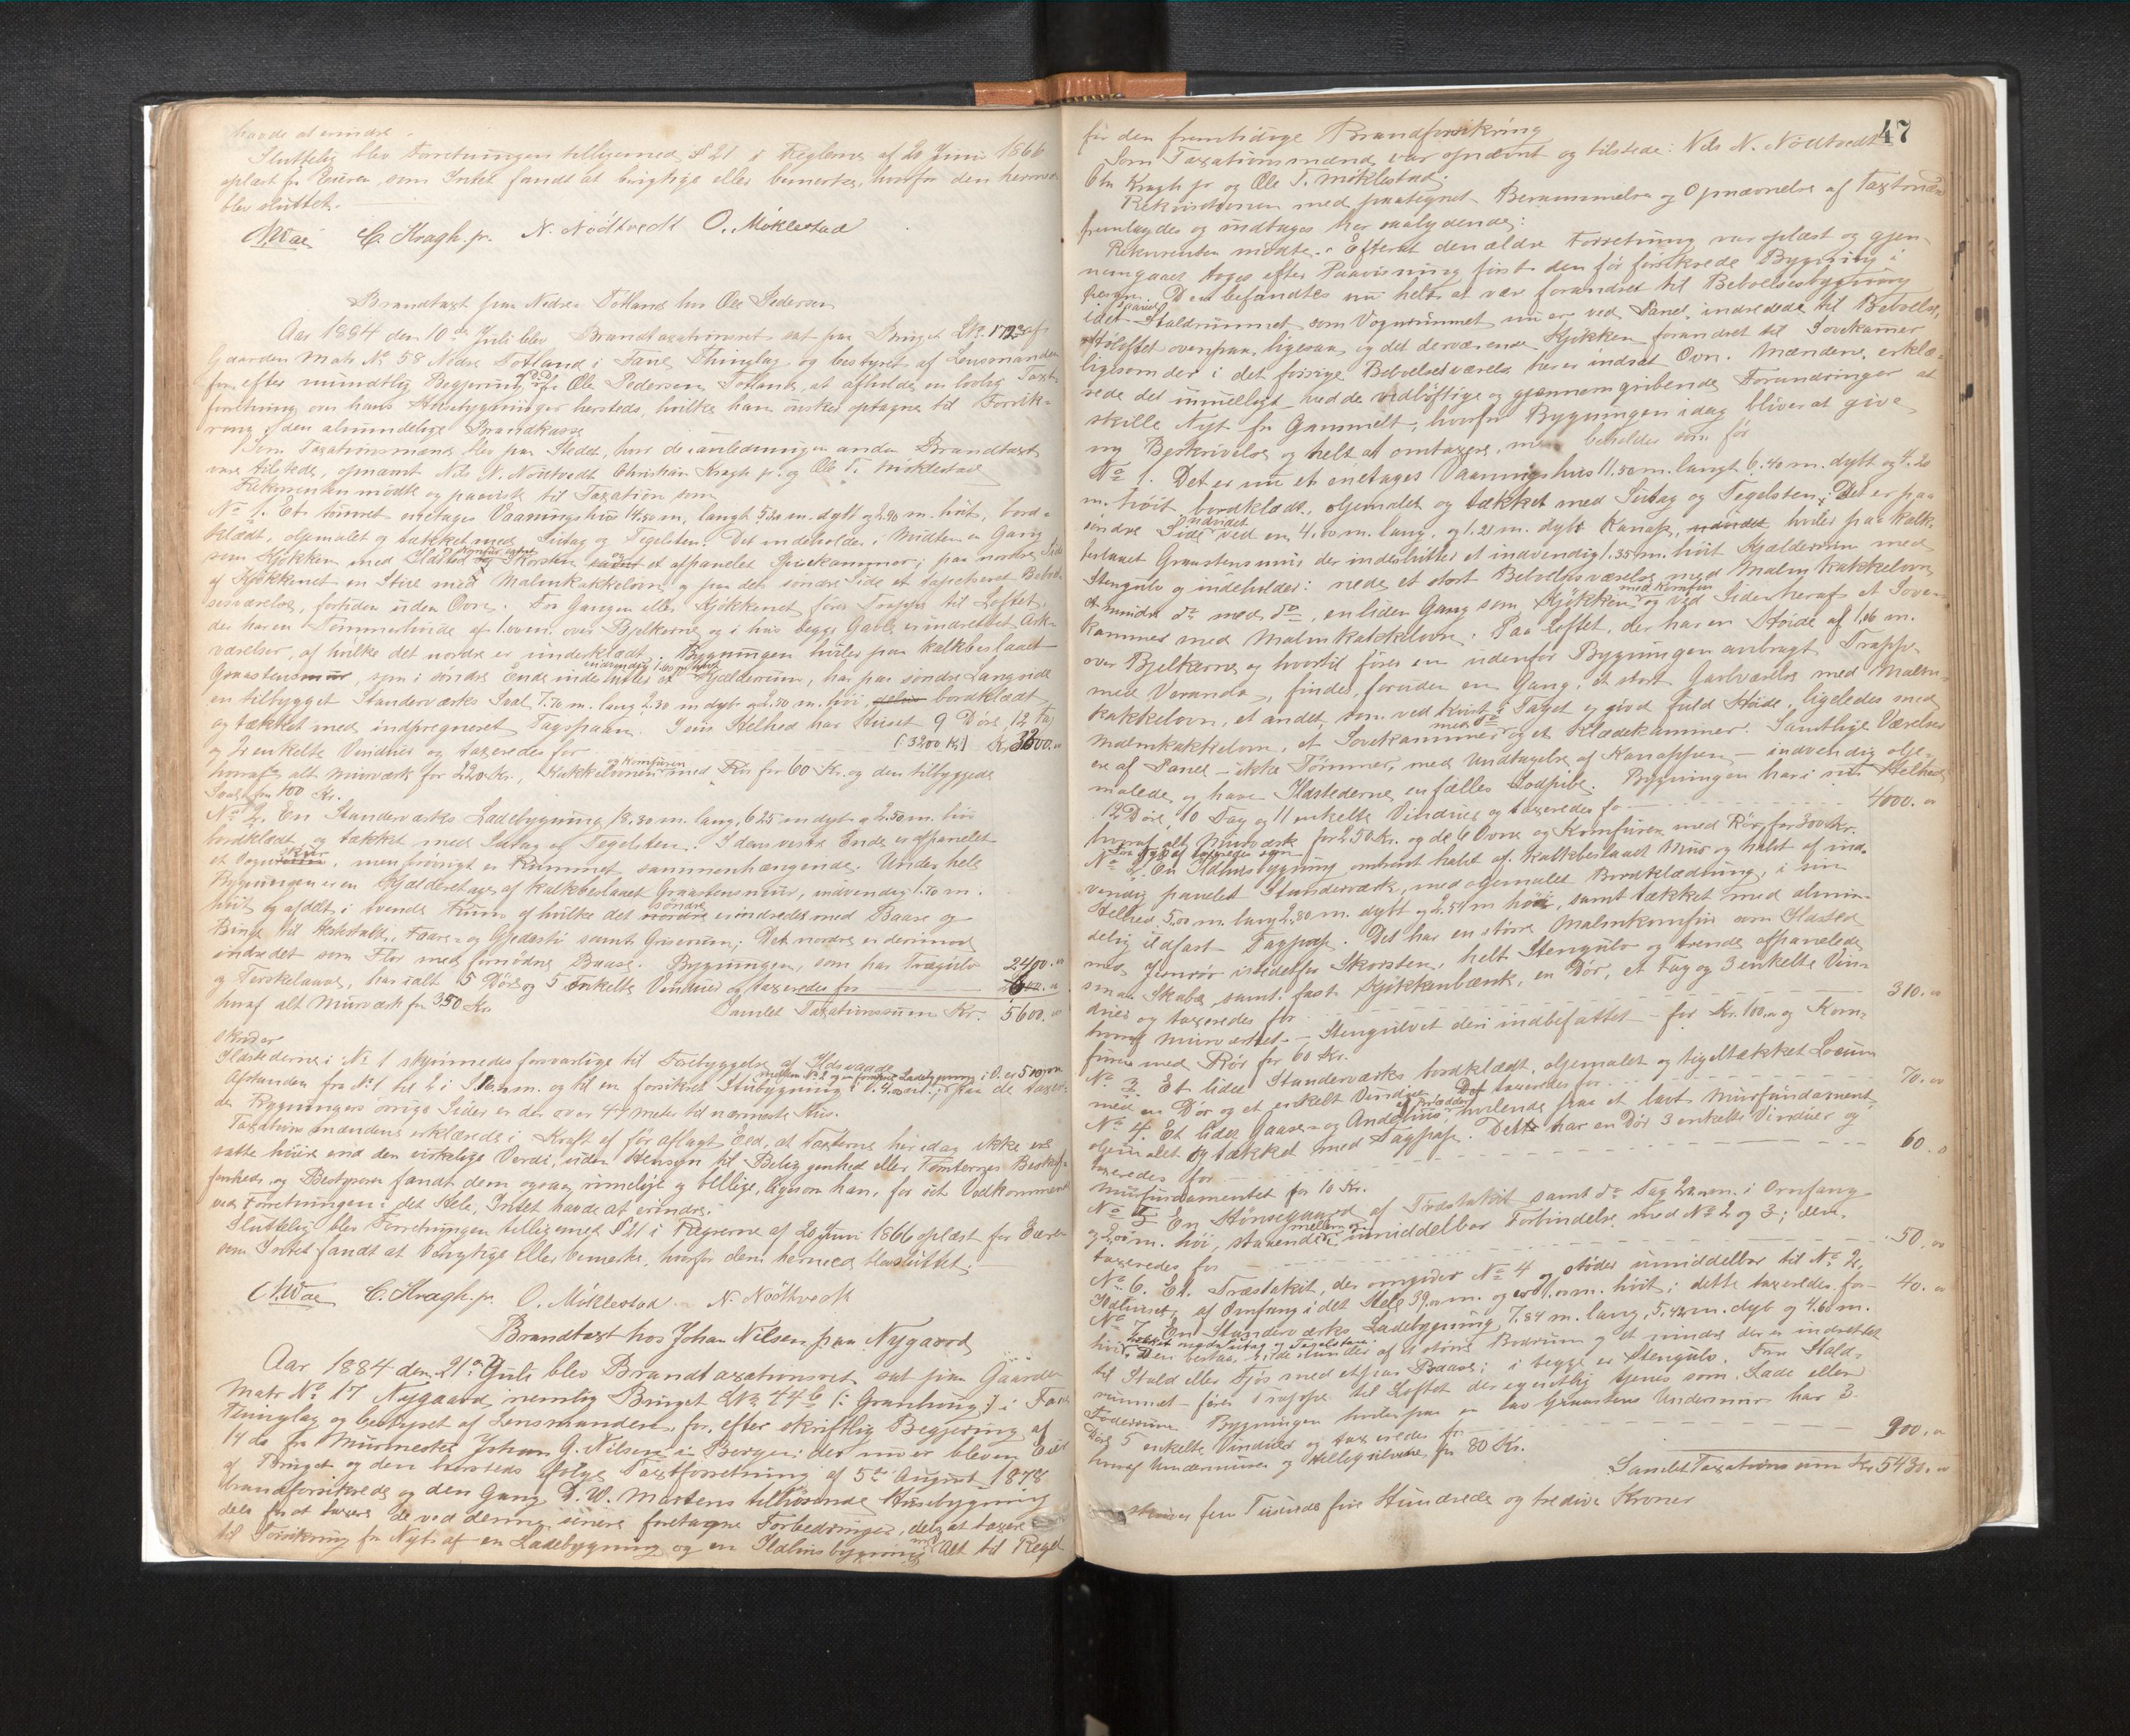 havde at erindre.
Sluttelig blev Forretningen tilligemed § 21 i Reglerne af 20 Juni 1866
oplæst for Eieren, som Intet fandt at berigtige eller bemerke, hvorfor den hermed
blev sluttet.
C. Kragh jr. N. Nödtvedt O. Möklestad
Brandtaxt paa Nedre Totland hos Ole Pedersen
Aar 1884 den 10de Juli blev Brandtaxationsret sat paa Bruget af
Gaarden Matr No 58 Nedre Totland i Fane Thinglag og bestyret af Lensmanden
for efter mundtlig Begjering af Ole Pedersen Totland, at afholde en lovlig Taxt-
forretning over hans Husebygninger hersteds, hvilke han ønsker optagne til Forsik-
ring i den almindelige Brandkasse
Som Taxationsmænd blev paa Stedet, hvor de i anledning en anden Brandtaxt
vare tilstede, opnævnt Nils N. Nödtvedt Christian Kragh jr. og Ole T. Möklestad
Rekvirenten mødte og paaviste til Taxation som
No 1. Et tømret enetages Vaaningshus 14.80 m. langt 5.20 m. dybt og 2.90 m. høit, bord-
klædt, oljemalet og tækket med Sutag og Tegelsten. Det indeholder i Midten en Gang
som Kjøkken med Ildsted og Skorsten og et afpanelet Spisekammer; paa nordre Side
af Kjøkkenet en Stue med Malmkakkelovn og paa den søndre Side et tapetseret Beboel-
sesværelse, fortiden uden Ovn. Fra Gangen eller Kjøkkenet fører Trappe til Loftet,
der har en Tømmerhøide af 1.00 m. over Bjelkerne og i hvis begge Gavle er indrettet Ark-
værelser, af hvilke det nordre er underklædt. Bygningen hviler paa kalkbeslaaet
Graastensmur, som i søndre Ende indeslutter et Kjælderrum, har paa søndre Langside
en tilbygget Standerværks Sval 7.70 m. lang 2.30 m dyb og 2.50 m. høi, bordklædt
og tækket med indpregneret Tagspaan. I sin Helhed har Huset 9 Døre 12 Fag
og 2 enkelte Vinduer og taxeredes for (3200 Kr.) Kr. 3200.00
hvoraf alt Murværk for 220 Kr., Kakkelovnen og Komfuren med Rør for 60 Kr. og den tilbyggede
Sval for 100 Kr.
No 2. En Standerværks Ladebygning 18.80 m. lang, 6.25 m dyb og 2.50 m. høi
bordklædt og tækket med Sutag og Tegelsten. I dens vestre Ende er afpanelet
et Vognskur, men forøvrigt er Rummet sammenhængende. Under hele
Bygningen er en Kjælderetage af kalkbeslaaet Graastensmur, indvendig 1.70 m.
høit og afdelt i tvende Rum af hvilke det søndre er indredet med Baase og
Binge til Hestestald, Faare- og Gjedesti samt Griserum. Det nordre er derimod
indredet som Flor med fornødne Baase. Bygningen, som har Trægulv 2400.00
og Tørskelaave, har ialt 5 Døre og 5 enkelte Vinduer og taxeredes for
hvoraf alt Murværk for 350 Kr. Samlet Taxationssum Kr. 5600.00
skriver
Ildstederne i No 1 skjønnedes forsvarlige til Forebyggelse af Ildsvaade
Afstanden fra No 1 til
de Bygningers øvrige Sider er der over 44 meter til nærmeste Hus.
Taxationsmændene erklærede i Kraft af før aflagt Eed, at Taxterne her idag ikke ere
satte høiere end den virkelige Verdi, uden Hensyn til Beliggenhed eller Tomternes Beskaf-
fenhed, og Bestyreren fandt dem ogsaa rimelige og billige, ligesom han, for sit Vedkommende
ved Forretningen i det Hele, Intet havde at erindre.
Sluttelig blev Forretningen tilligemed § 21 i Reglerne af 20 Juni 1866 oplæst for Eieren
som Intet fandt at berigtige eller bemerke, hvorfor den hermed blev sluttet.
C. Kragh jr. O. Möklestad N. Nödtvedt
Brandtaxt hos Johan Nilsen paa Nygaard
Aar 1884 den 21de Juli blev Brandtaxationsret sat paa Gaarden
Matr No 17 Nygaard, nemlig Bruget i Fane
Thinglag og bestyret af Lensmanden, for, efter skriftlig Begjering af
14 ds. fra Murmester Johan G. Nilsen i Bergen, der nu er bleven Eier
af Bruget og den hersteds ifølge Taxtforretning af 5te August 1878
brandforsikrede og den Gang D. W. Martens tilhørende Husebygning
dels for at taxere de ved denne senere foretagne Forbedringer, dels at taxere
til Forsikring for Nyt af en Ladebygning og en Ildhusbygning, Alt til Regel
47
for den fremtidige Brandforsikring
Som Taxationsmænd var opnævnt og tilstede: Nils N. Nödtvedt
Chr Kragh jr og Ole T. Möklestad.
Rekvisitionen med paategnet Berammelse og Opnævnelse af Taxtmænd
fremlagdes og indtages her saalydende:
Rekvirenten mødte. Efterat den ældre Forretning var oplæst og gjen-
nemgaaet toges efter Paavisning først den før forsikrede Bygning i
Øiesyn. Den befandtes nu helt at være forandret til Beboelsesbygning
idet saavel Staldrummet som Vognrummet nu er ved Panel indredede til Beboelse,
Høloftet ovenpaa ligesaa og det derværende Kjøkken forandret til Sovekamer
ligesom der i det forrige Beboelsesværelse her er indsat Ovn. Mændene erklæ-
rede det umuligt ved de vidløftige og gjennemgribende Forandringer at
skille Nyt fra Gammelt, hvorfor Bygningen idag bliver at give
ny Beskrivelse og helt at omtaxere, men beholder som før
No 1. Det er nu et enetages Vaaningshus 11.50 m. langt 6.40 m. dybt og 4.20
m. høit, bordklædt, oljemalet og tækket med Sutag og Tegelsten. Det er paa
søndre Side udvidet ved en 4.00 m. lang, og 1.21 m. dyb Kanap, hviler paa kalk-
beslaaet Graastensmur der indeslutter et indvendig 1.35 m. høit Kjælderrum med
Stengulv og indeholder: nede et stort Beboelsesværelse med Malm Kakkelovn
et mindre do med do, en liden Gang som Kjøkken med Komfur og ved Siden heraf et Sove-
kammer med Malmkakkelovn. Paa Loftet, der har en Høide af 1.06 m.
over Bjelkerne og hvortil fører en udenfor Bygningen anbragt Trappe
med Veranda, findes, foruden en Gang, et stort Gavlværelse med Malm-
kakkelovn, et andet, som ved Kvist i Taget er givet fuld Høide, ligeledes med
Malmkakkelovn, et Sovekammer med do og et Klædekammer. Samtlige Værelser
er af Panel - ikke Tømmer, med Undtagelse af Kanappen - indvendig olje-
malede og have Ildstederne en fælles Lodpibe. Bygningen har i sin Helhed
12 Døre, 10 Fag og 11 enkelte Vinduer og taxeredes for 4000.00
hvoraf alt Murværk for 250 Kr. og de 6 Ovne og Komfuren med Rør for 300 Kr.
No 2. En Ildhusbygning omtrent halvt af kalkbeslaaet Mur og halvt af ind-
vendig panelet Standerværk, med oljemalet Bordklædning, i sin
Helhed 5.00 m. lang 2.80 m. dybt og 2.54 m høi, samt tækket med almin-
delig ildfast Tagpap. Det har en større Malmkomfur som Ildsted
med Jernrør istedetfor Skorsten, helt Stengulv og tvende afpanelede
smaa Skabe samt fast Kjøkkenbænk, en Dør, et Fag og 3 enkelte Vin-
duer og taxeredes for 310.00
hvoraf Murværket - Stengulvet deri indbefattet - for Kr. 100.00 og Kom-
furen med Rør for 60 Kr.
No 3. Et lidet Standerværks bordklædt, oljemalet og tigeltækket Locum
med en Dør og et enkelt Vindue. Det taxeredes for 70.00
No 4. Et lidet Gaase- og Andehus hvilende paa et lavt Murfundament
oljemalet og tækket med Tagpap. Dette har en Dør 3 enkelte Vinduer og
taxeredes for 60.00
Murfundamentet for 10 Kr.
No 5 En Hønsegaard af Træstakit samt do Tag 22.00 m. i Omfang
og 2.00 m. høi, staaende i umiddelbar Forbindelse med No 2 og 3; den
taxeredes for 50.00
No 6. Et Træstakit, der omgiver No 4 og støder umiddelbar til No 2,
Ildhuset, af Omfang i det Hele 39.00 m. og 1.00 m. høit; dette taxeredes for 40.00
No 7. En Standerværks Ladebygning 7.84 m. lang, 5.42 m. dyb og 4.60 m.
høi, tækket med Sutag og Tegelsten.
til Stald eller Fjøs med etpar Baase; i begge er Stengulv. Fra Stald-
rummet fører Trappe til Loftet der egentlig tjener som Lade eller
Foderrum. Bygningen hviler paa en lav Graastens Undermur har 3
Døre 5 enkelte Vinduer og taxeredes for 900.00
hvoraf Undermuren og Hellegulvene for 80 Kr.
Samlet Taxationssum Kr. 5430.00
skriver fem Tusinde fire Hundrede og tredive Kroner